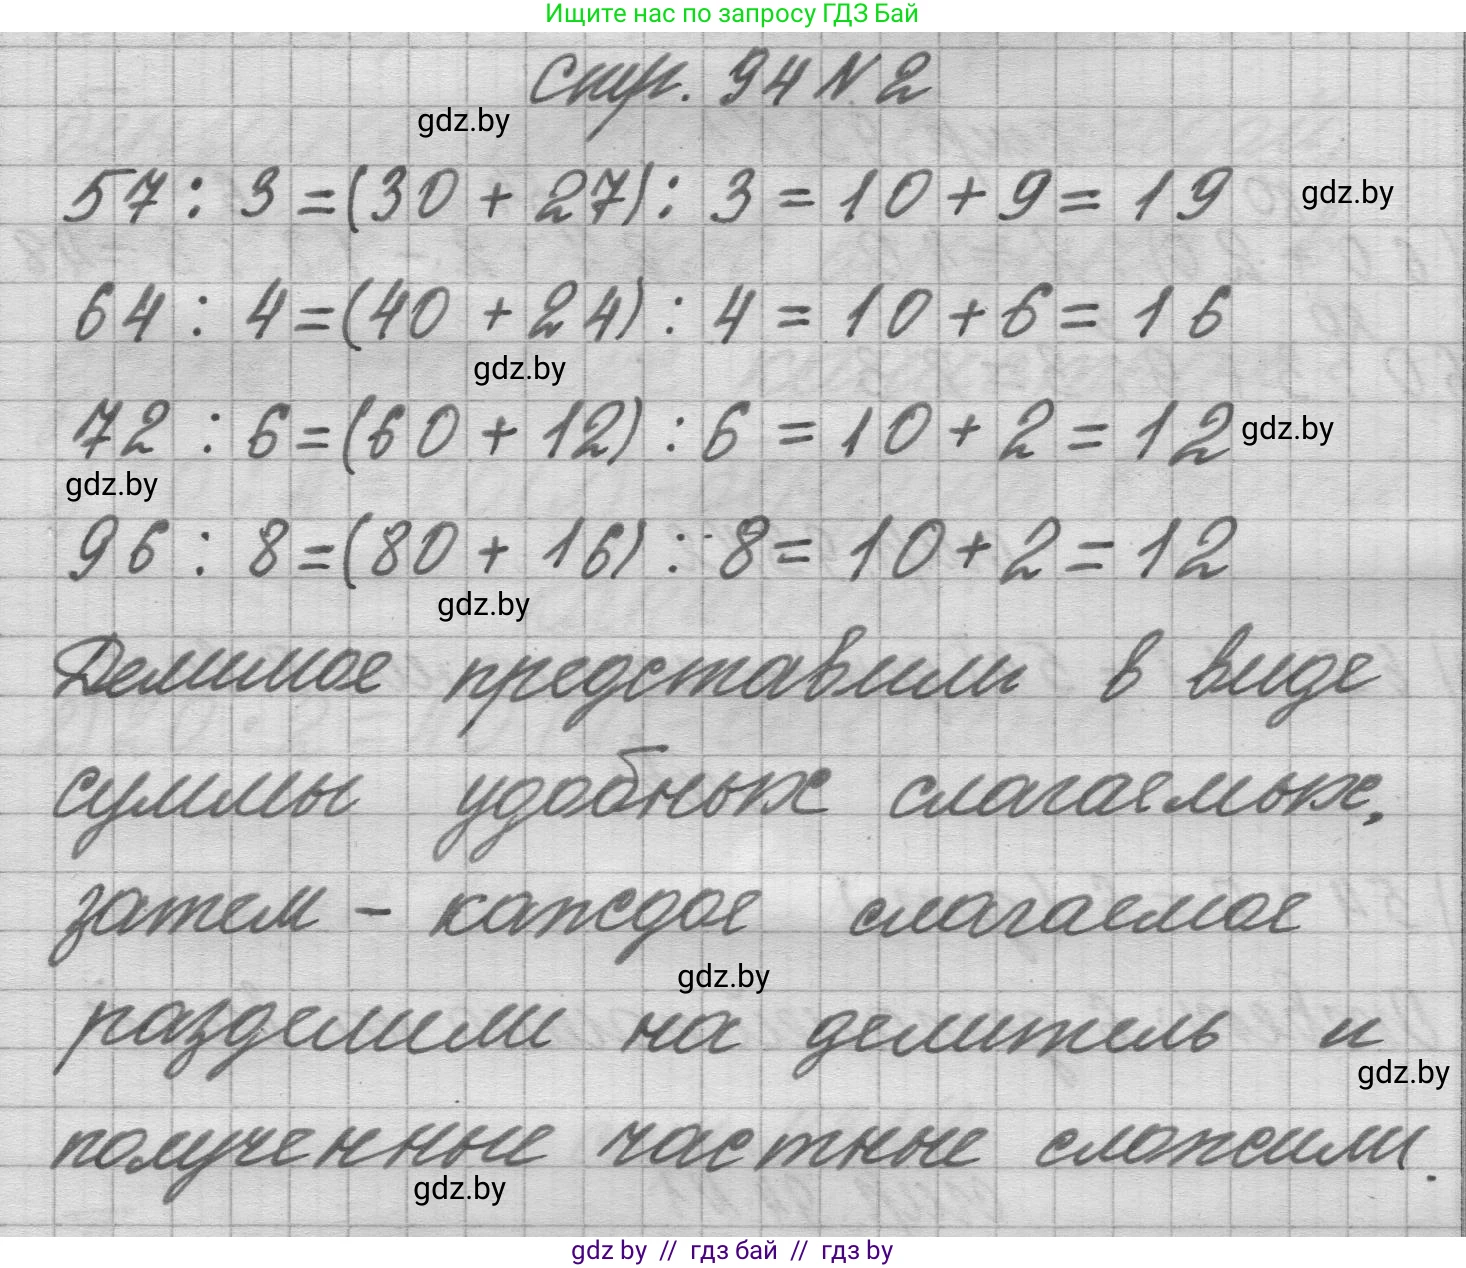 Ищите нас по запросу ГДЗ Бай
Стр. 94 N 2
gdz.by
57 : 3 = (30 + 27) : 3 = 10 + 9 = 19 gdz.by
64 : 4 = (40 + 24) : 4 = 10 + 6 = 16
gdz.by
72 : 6 = (60 + 12) : 6 = 10 + 2 = 12 gdz.by
gdz.by
96 : 8 = (80 + 16) : 8 = 10 + 2 = 12
gdz.by
Делимое представили в виде
суммы удобных слагаемых,
затем - каждое слагаемое
gdz.by
разделили на делитель и
gdz.by
полученные частные сложили.
gdz.by
gdz by // гдз бай // гдз by